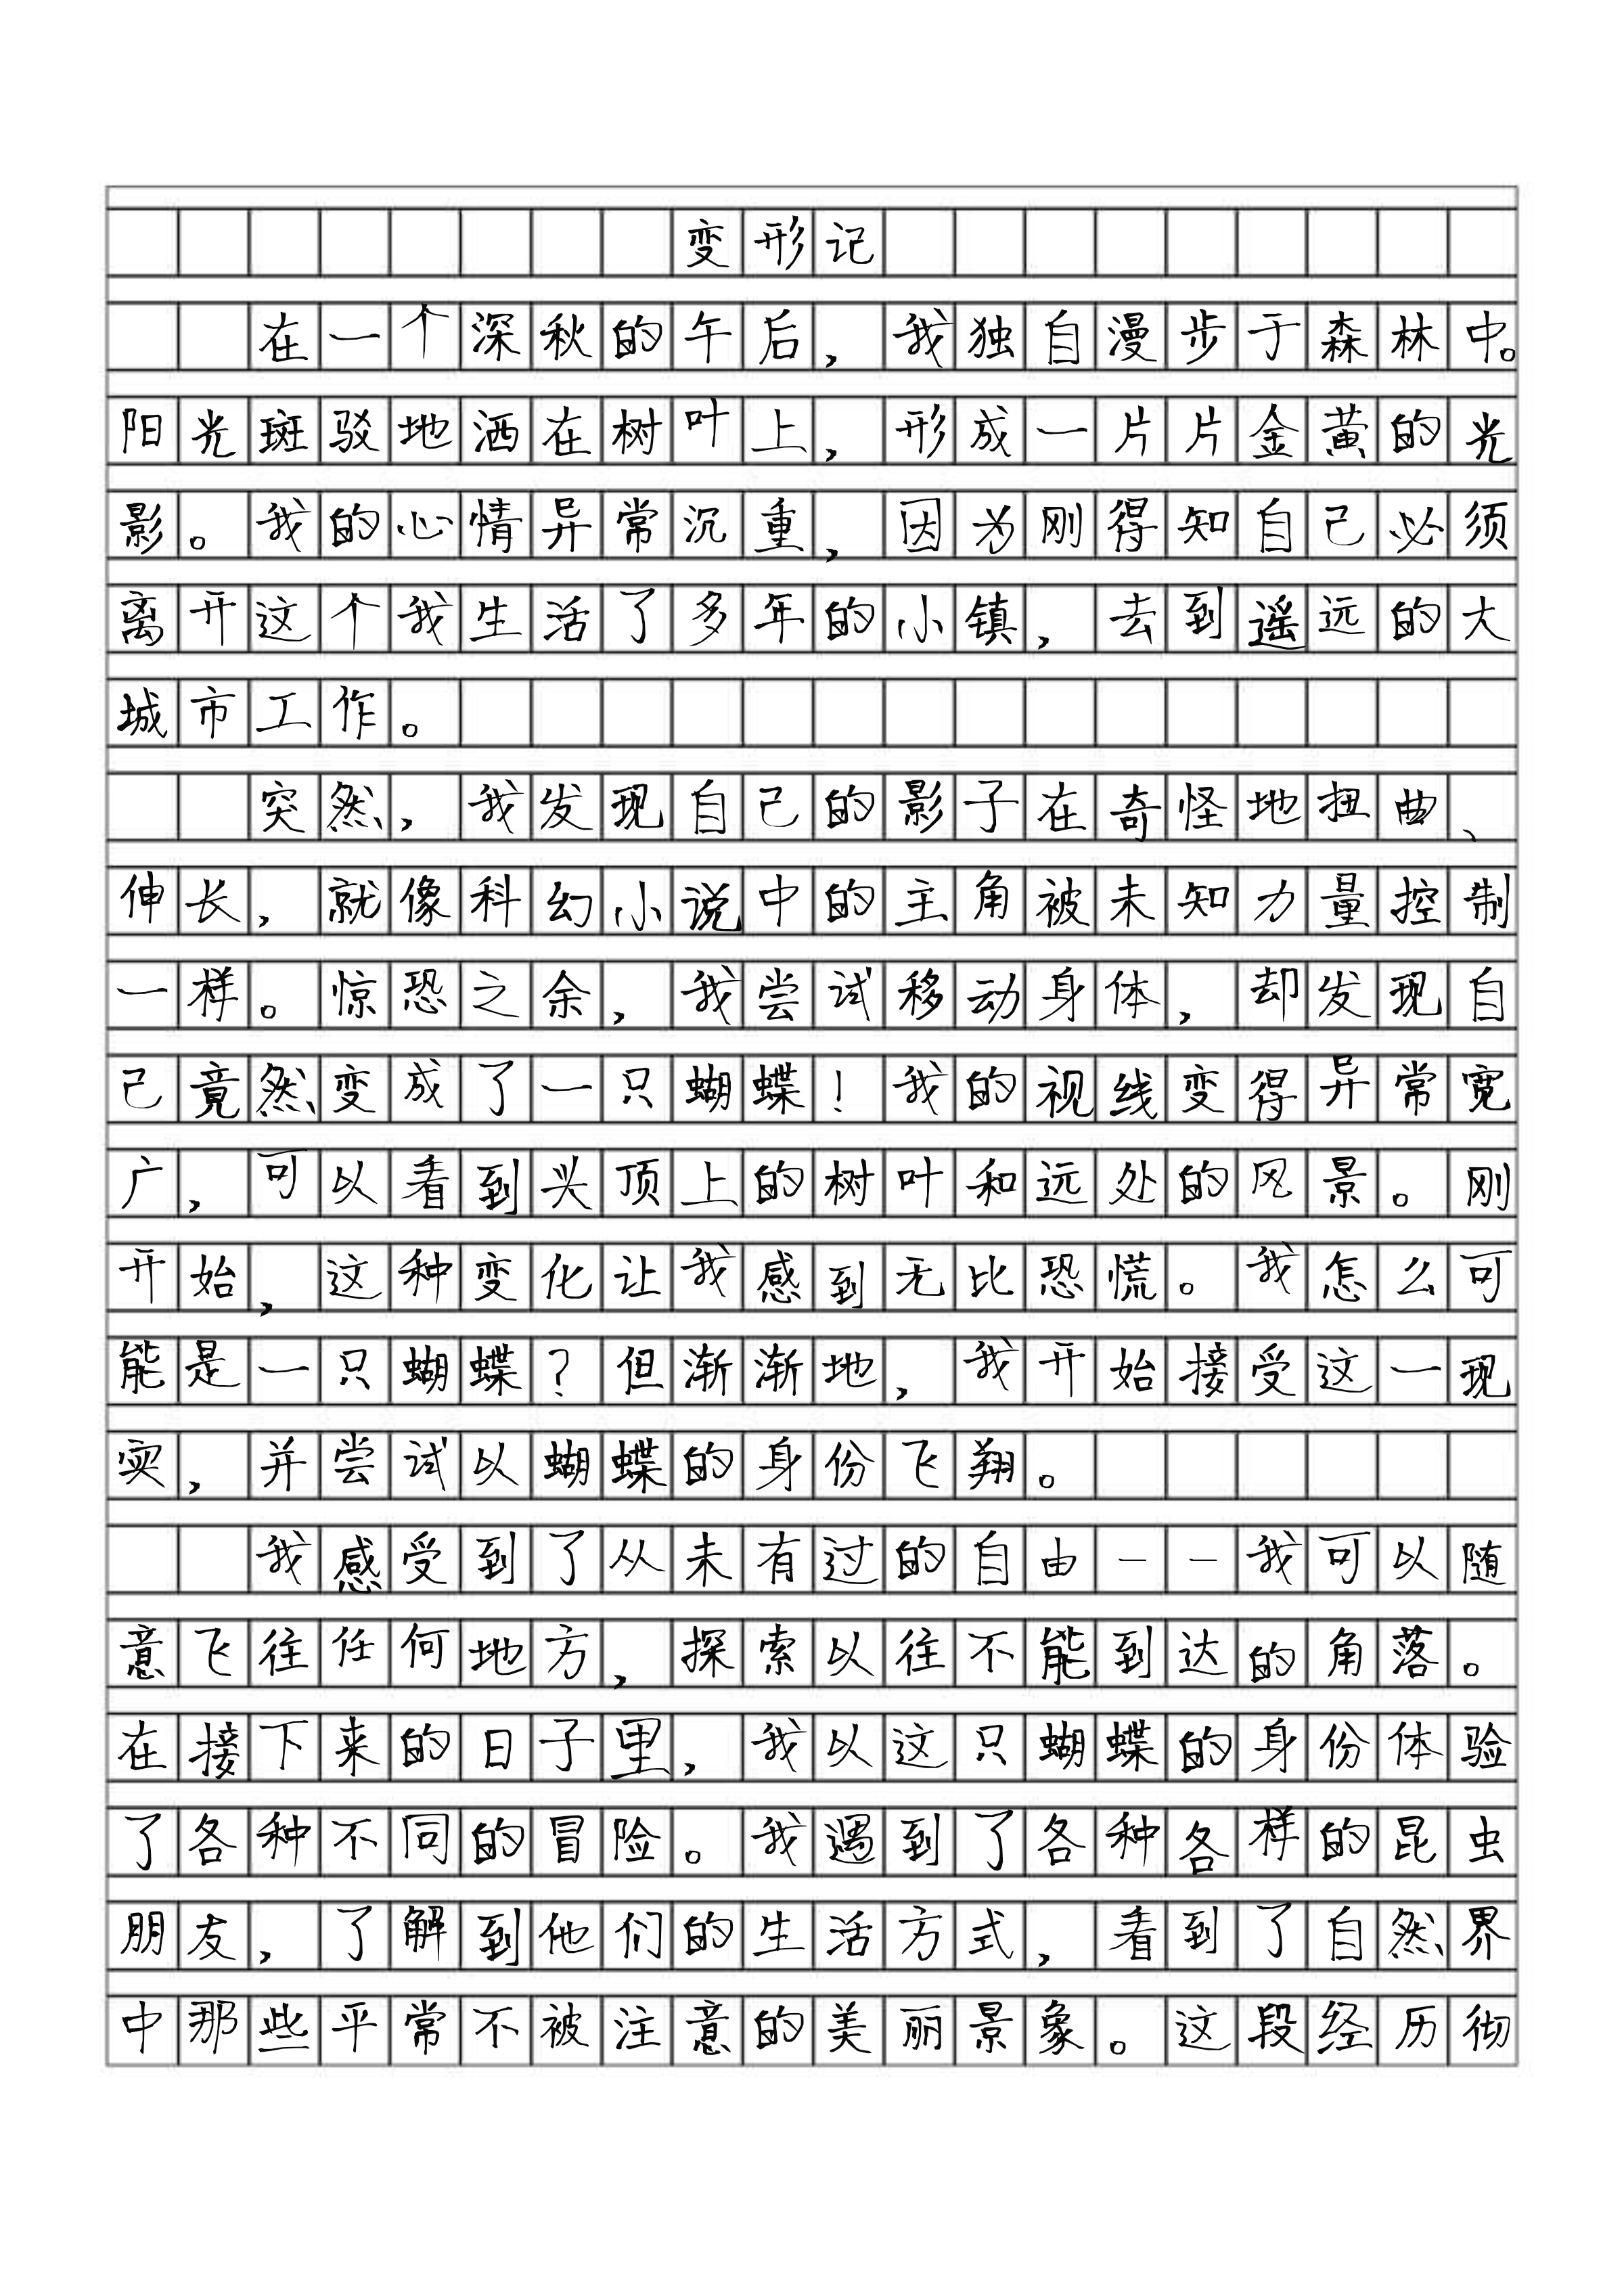 变形记
在一个深秋的午后，我独自漫步于森林中。
阳光斑驳地洒在树叶上，形成一片片金黄的光
影。我的心情异常沉重，因为刚得知自己必须
离开这个我生活了多年的小镇，去到遥远的大
城市工作。
突然，我发现自己的影子在奇怪地扭曲、
伸长，就像科幻小说中的主角被未知力量控制
一样。惊恐之余，我尝试移动身体，却发现自
己竟然变成了一只蝴蝶！我的视线变得异常宽
广，可以看到头顶上的树叶和远处的风景。刚
开始，这种变化让我感到无比恐慌。我怎么可
能是一只蝴蝶？但渐渐地，我开始接受这一现
实，并尝试以蝴蝶的身份飞翔。
我感受到了从未有过的自由——我可以随
意飞往任何地方，探索以往不能到达的角落。
在接下来的日子里，我以这只蝴蝶的身份体验
了各种不同的冒险。我遇到了各种各样的昆虫
朋友，了解到他们的生活方式，看到了自然界
中那些平常不被注意的美丽景象。这段经历彻